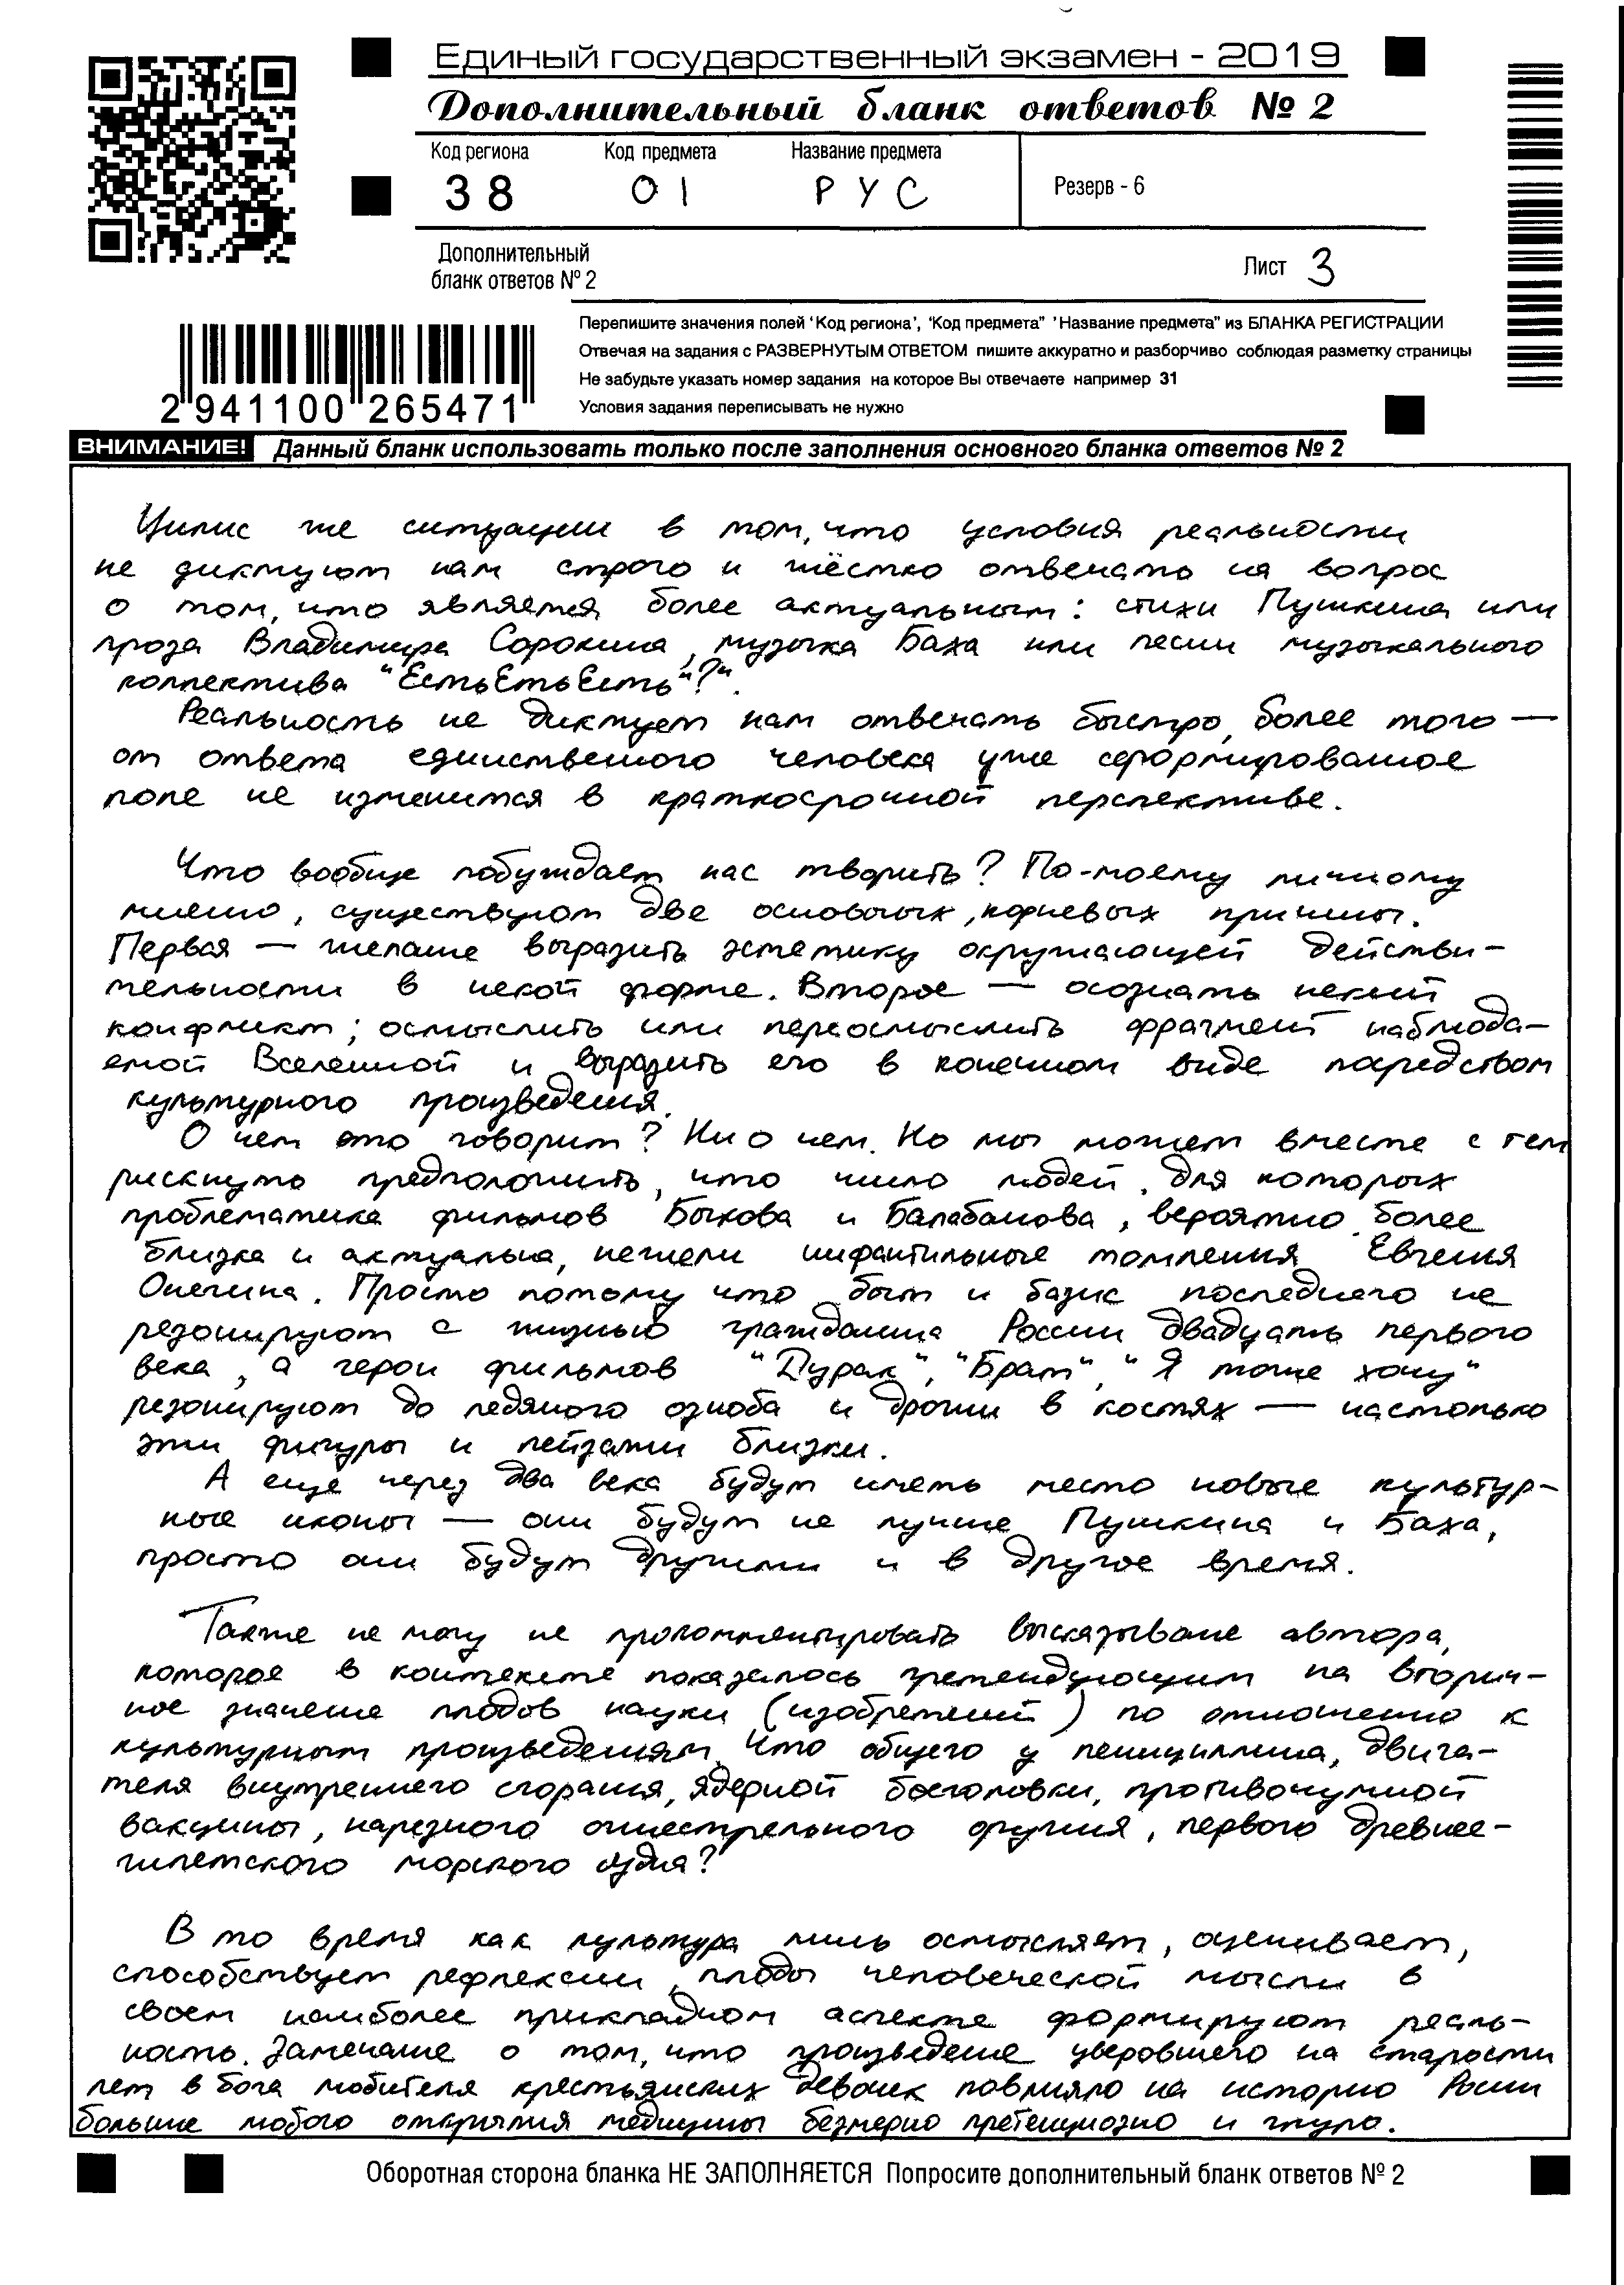 Единый государственный экзамен - 2019
Дополнительный бланк ответов № 2
Код региона Код предмета Название предмета
38 01 РУС
Резерв - 6
Дополнительный
бланк ответов № 2
Лист 3
Перепишите значения полей 'Код региона', 'Код предмета" 'Название предмета" из БЛАНКА РЕГИСТРАЦИИ
Отвечая на задания с РАЗВЕРНУТЫМ ОТВЕТОМ пишите аккуратно и разборчиво соблюдая разметку страницы
Не забудьте указать номер задания на которое Вы отвечаете например 31
Условия задания переписывать не нужно
2 941100 265471
ВНИМАНИЕ! Данный бланк использовать только после заполнения основного бланка ответов № 2
Цинис же ситуации в том, что условия реальности
не диктуют нам строго и жёстко отвечать на вопрос
о том, что является более актуальным: стихи Пушкина или
проза Владимира Сорокина, музыка Баха или песни музыкального
коллектива "ЕстьЕстьЕсть"?".
Реальность не диктует нам отвечать быстро, более того —
от ответа единственного человека уже сформированное
поле не изменится в краткосрочной перспективе.
Что вообще побуждает нас творить? По-моему личному
мнению, существуют две основных, корневых причины.
Первая — желание выразить эстетику окружающей действи-
тельности в некой форме. Второе — осознать некий
конфликт; осмыслить или переосмыслить фрагмент наблюда-
емой Вселенной и выразить его в конечном виде посредством
культурного произведения.
О чем это говорит? Ни о чем. Но мы можем вместе с тем
рискнуть предположить, что число людей, для которых
проблематика фильмов Быкова и Балабанова, вероятно, более
близка и актуальна, нежели инфантильные томления Евгения
Онегина. Просто потому что быт и базис последнего не
резонируют с жизнью гражданина России двадцать первого
века, а герои фильмов "Дурак", "Брат", "Я тоже хочу"
резонируют до ледяного озноба и дрожи в костях — настолько
эти фигуры и пейзажи близки.
А еще через два века будут иметь место новые культур-
ные иконы — они будут не лучше Пушкина и Баха,
просто они будут другими и в другое время.
Также не могу не прокомментировать высказывание автора,
которое в контексте показалось претендующим на вторич-
ное значение плодов науки (изобретений) по отношению к
культурным произведениям. Что общего у пенициллина, двига-
теля внутреннего сгорания, ядерной боеголовки, противочумной
вакцины, нарезного огнестрельного оружия, первого древнее-
гипетского морского судна?
В то время как культура лишь осмысляет, оценивает,
способствует рефлексии, плоды человеческой мысли в
своем наиболее прикладном аспекте формируют реаль-
ность. Замечание о том, что произведение уверовшего на старости
лет в бога любителя крестьянских девочек повлияло на историю России
больше любого открытия медицины безмерно претенциозно и глупо.
Оборотная сторона бланка НЕ ЗАПОЛНЯЕТСЯ Попросите дополнительный бланк ответов № 2